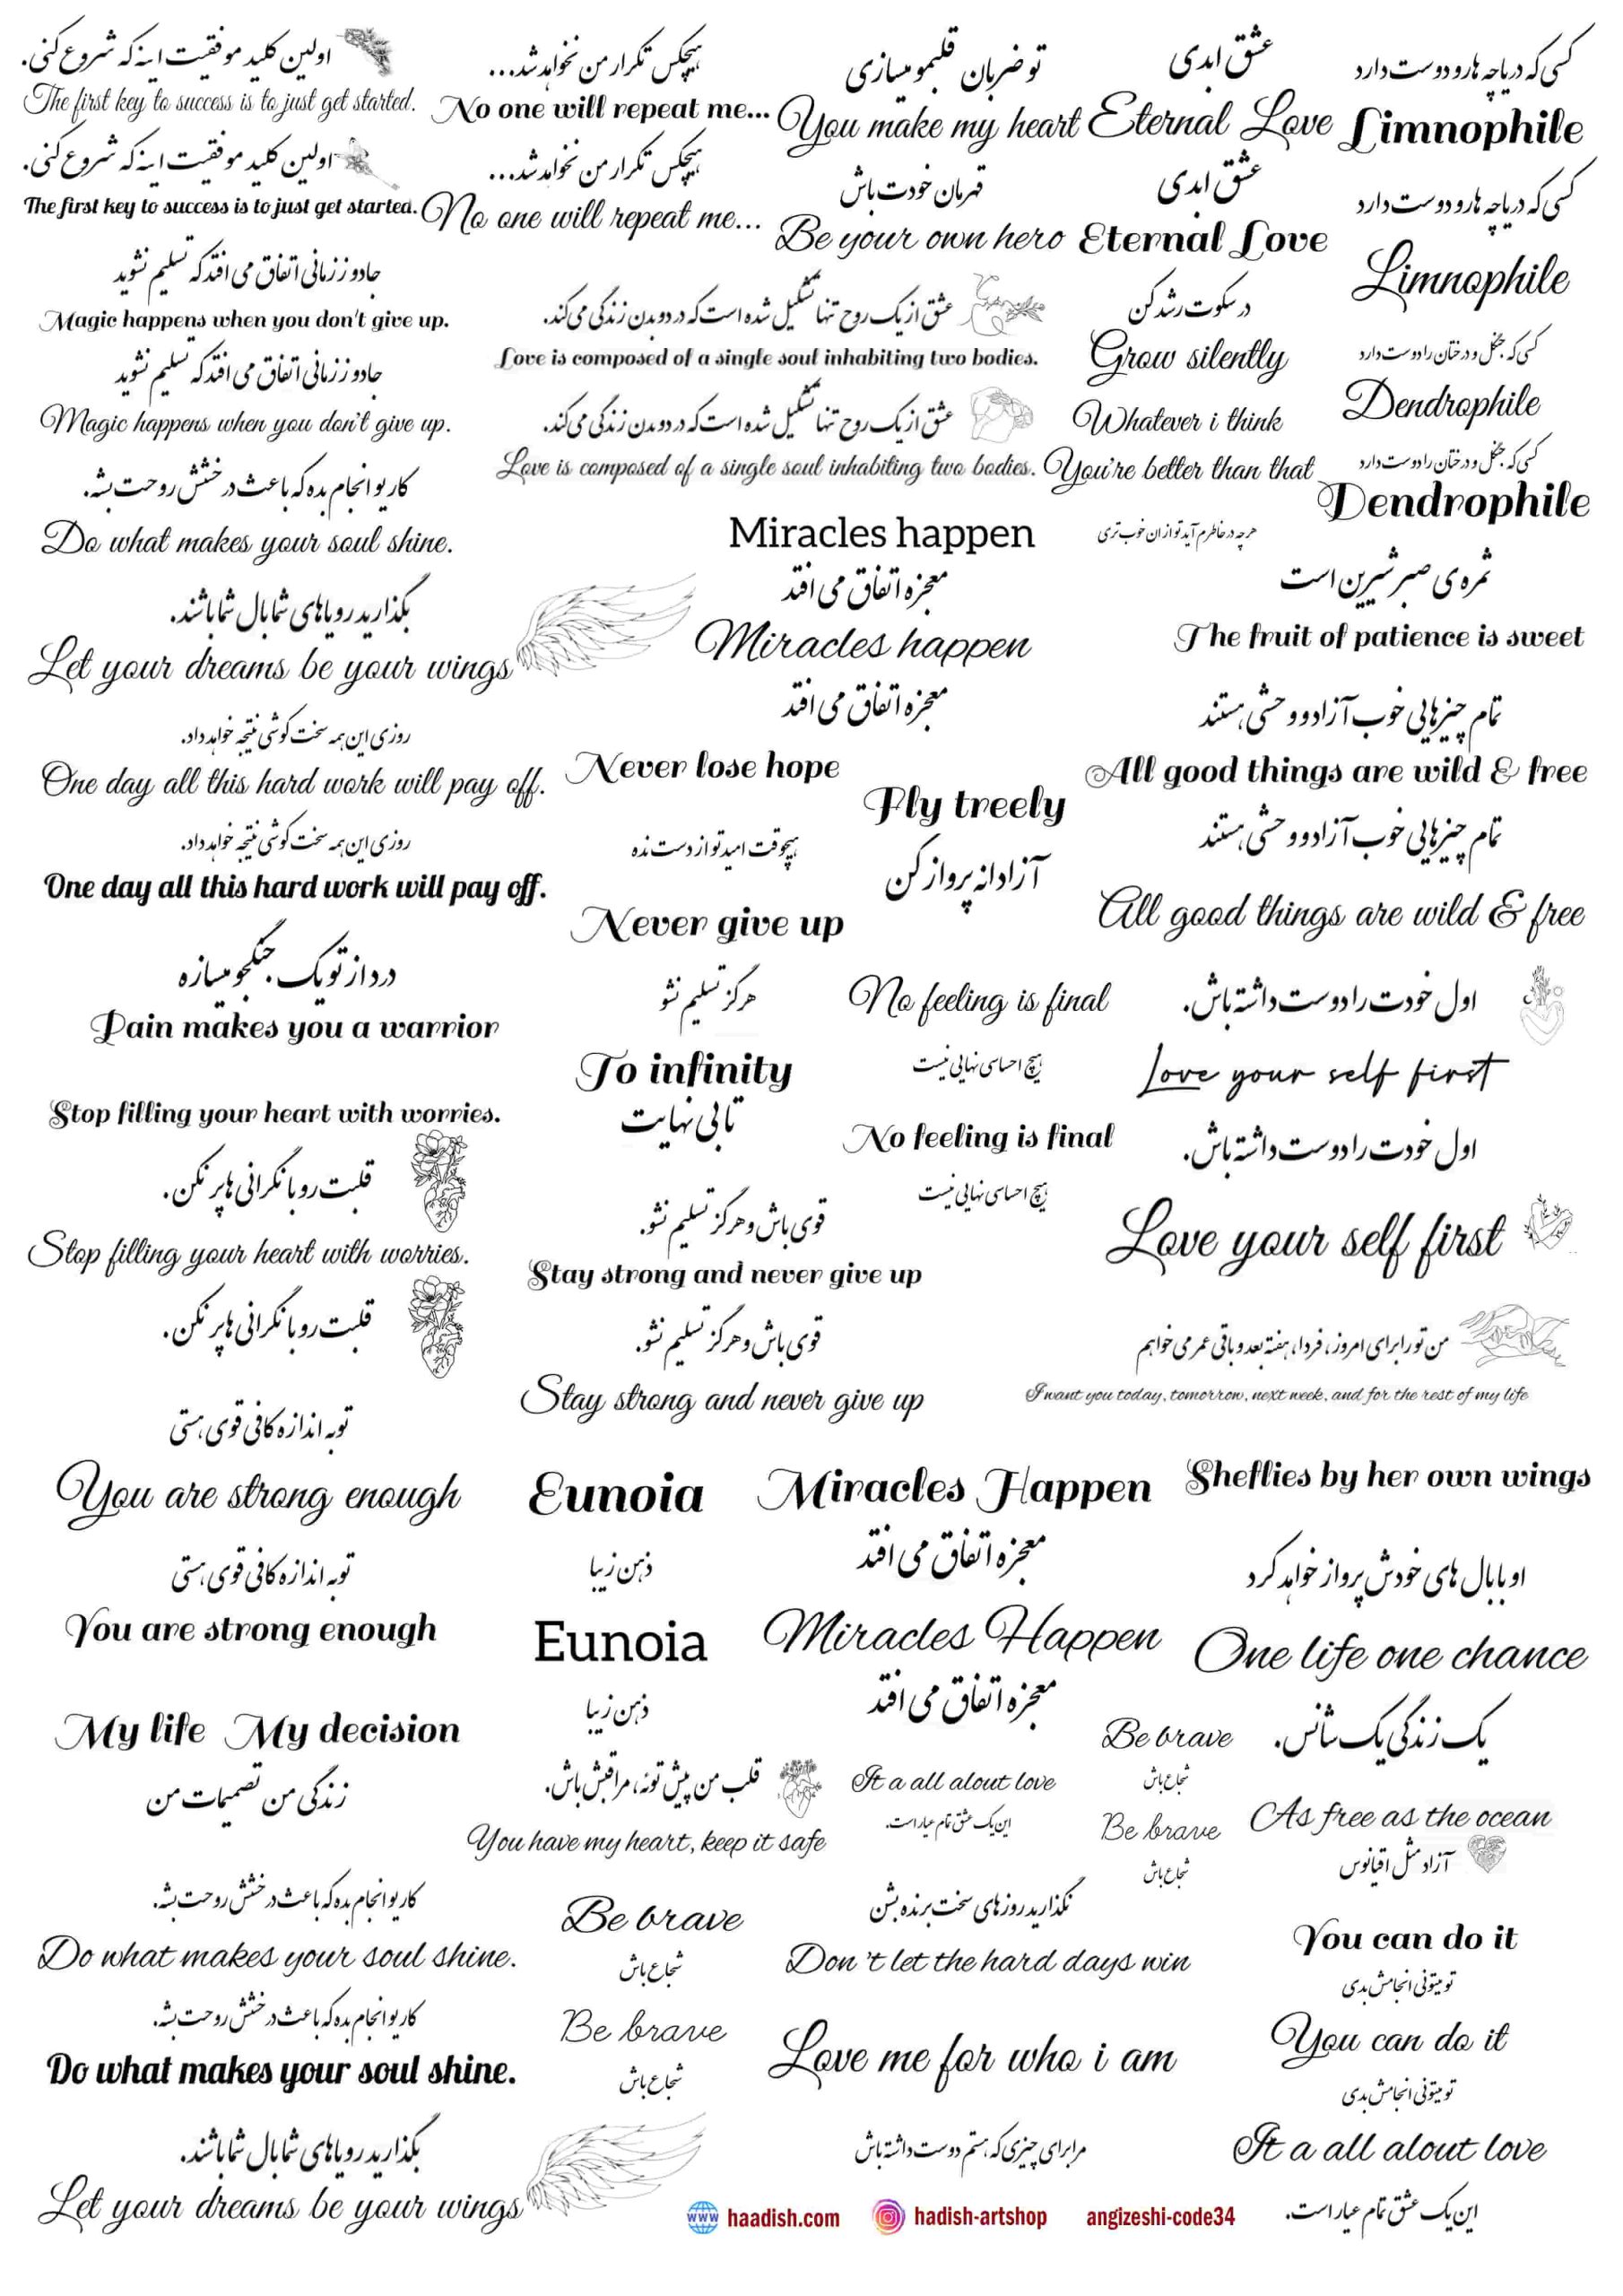 اولین کلید موفقیت اینه که شروع کنی.
The first key to success is to just get started.
اولین کلید موفقیت اینه که شروع کنی.
The first key to success is to just get started.
جادو ز زمانی اتفاق می افتد که تسلیم نشوید
Magic happens when you don't give up.
جادو ز زمانی اتفاق می افتد که تسلیم نشوید
Magic happens when you don't give up.
کاریو انجام بده که باعث درخشش روحت بشه.
Do what makes your soul shine.
بگذارید رویاهای شما بال شما باشند.
Let your dreams be your wings
روزی این همه سخت کوشی نتیجه خواهد داد.
One day all this hard work will pay off.
روزی این همه سخت کوشی نتیجه خواهد داد.
One day all this hard work will pay off.
درد از تو یک جنگجو میسازه
Pain makes you a warrior
Stop filling your heart with worries.
قلبت رو با نگرانی ها پر نکن.
Stop filling your heart with worries.
قلبت رو با نگرانی ها پر نکن.
تو به اندازه کافی قوی هستی
You are strong enough
تو به اندازه کافی قوی هستی
You are strong enough
My life My decision
زندگی من تصمیمات من
کاریو انجام بده که باعث درخشش روحت بشه.
Do what makes your soul shine.
کاریو انجام بده که باعث درخشش روحت بشه.
Do what makes your soul shine.
بگذارید رویاهای شما بال شما باشند.
Let your dreams be your wings
هیچکس تکرار من نخواهد شد...
No one will repeat me...
هیچکس تکرار من نخواهد شد...
No one will repeat me...
تو ضربان قلبمو میسازی
You make my heart
قهرمان خودت باش
Be your own hero
عشق از یک روح تنها تشکیل شده است که در دو بدن زندگی می کند.
Love is composed of a single soul inhabiting two bodies.
عشق از یک روح تنها تشکیل شده است که در دو بدن زندگی می کند.
Love is composed of a single soul inhabiting two bodies.
Miracles happen
معجزه اتفاق می افتد
Miracles happen
معجزه اتفاق می افتد
Never lose hope
هیچوقت امیدتو از دست نده
Never give up
هرگز تسلیم نشو
To infinity
تا بی نهایت
قوی باش و هرگز تسلیم نشو.
Stay strong and never give up
قوی باش و هرگز تسلیم نشو.
Stay strong and never give up
Fly treely
آزادانه پرواز کن
No feeling is final
هیچ احساسی نهایی نیست
No feeling is final
هیچ احساسی نهایی نیست
Eunoia
ذهن زیبا
Eunoia
ذهن زیبا
Miracles Happen
معجزه اتفاق می افتد
Miracles Happen
معجزه اتفاق می افتد
قلب من پیش تونه، مراقبش باش.
You have my heart, keep it safe
It a all alout love
این یک عشق تمام عیار است.
Be brave
شجاع باش
Be brave
شجاع باش
نگذارید روزهای سخت برنده بشن
Don't let the hard days win
Love me for who i am
مرا برای چیزی که هستم دوست داشته باش
عشق ابدی
Eternal Love
عشق ابدی
Eternal Love
در سکوت رشد کن
Grow silently
Whatever i think
You're better than that
هر چه در خاطرم آید تو از ان خوب تری
کسی که دریاچه هارو دوست دارد
Limnophile
کسی که دریاچه هارو دوست دارد
Limnophile
کسی که جنگل و درختان را دوست دارد
Dendrophile
کسی که جنگل و درختان را دوست دارد
Dendrophile
ثمره ی صبر شیرین است
The fruit of patience is sweet
تمام چیزهایی خوب آزاد و وحشی هستند
All good things are wild & free
تمام چیزهایی خوب آزاد و وحشی هستند
All good things are wild & free
اول خودت را دوست داشته باش.
Love your self first
اول خودت را دوست داشته باش.
Love your self first
من تو را برای امروز، فردا، هفته بعد و باقی عمر می خواهم
I want you today, tomorrow, next week, and for the rest of my life
Sheflies by her own wings
او با بال های خودش پرواز خواهد کرد
One life one chance
یک زندگی یک شانس.
Be brave
شجاع باش
Be brave
شجاع باش
As free as the ocean
آزاد مثل اقیانوس
You can do it
تو میتونی انجامش بدی
You can do it
تو میتونی انجامش بدی
It a all alout love
این یک عشق تمام عیار است.
www haadish.com
hadish-artshop
angizeshi-code34